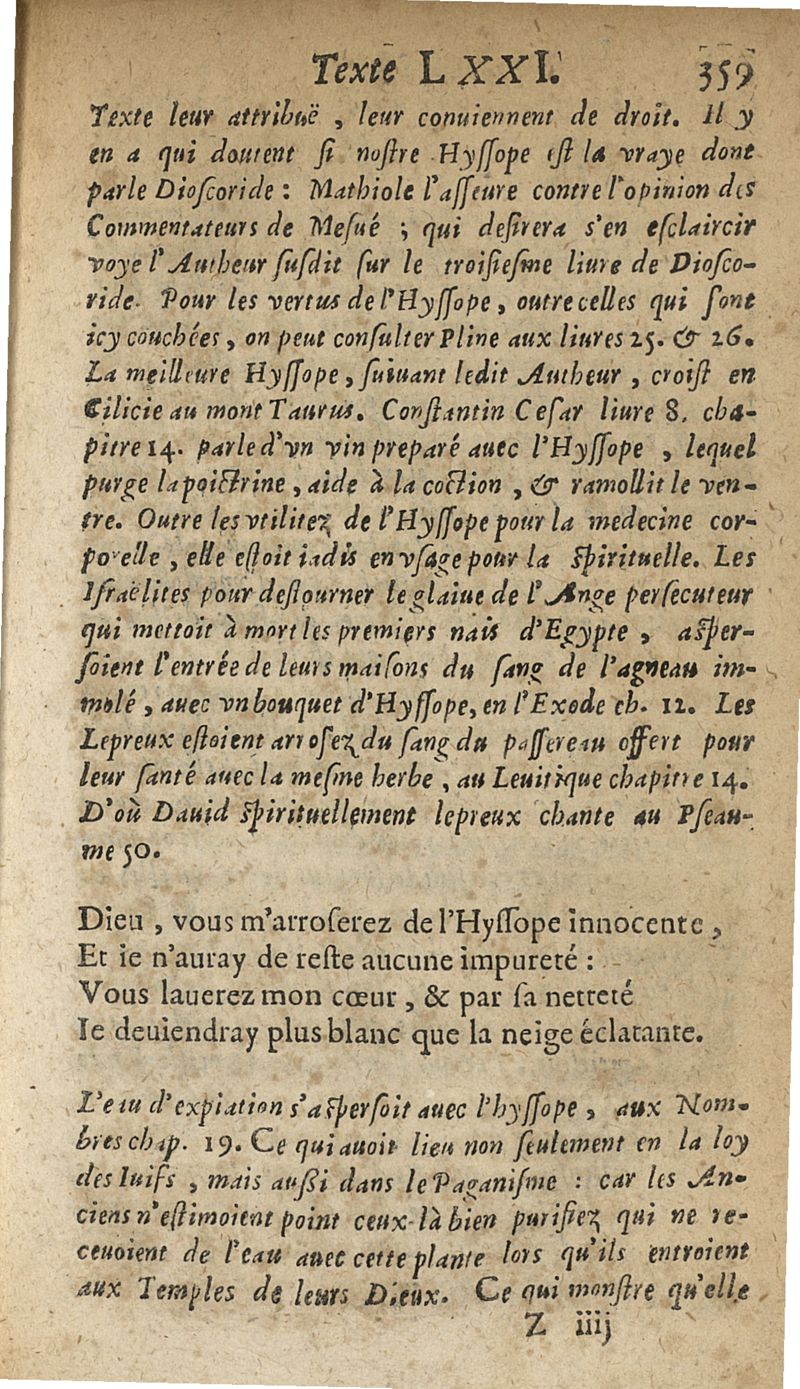 Texte LXXI. 359
Texte leur attribuë, leur conuiennent de droit. Il y
en a qui doutent ſi noſtre Hyſſope eſt la vraye dont
parle Dioſcoride : Mathiole l'aſſeure contre l'opinion des
Commentateurs de Meſué ; qui deſirera s'en eſclaircir
voye l'Autheur ſuſdit ſur le troiſieſme liure de Dioſco-
ride. Pour les vertus de l'Hyſſope, outre celles qui ſont
icy couchées, on peut conſulter Pline aux liures 25. & 26.
La meilleure Hyſſope, ſuiuant ledit Autheur, croiſt en
Cilicie au mont Taurus. Conſtantin Ceſar liure 8. cha-
pitre 14. parle d'vn vin preparé auec l'Hyſſope, lequel
purge la poictrine, aide à la coction, & ramollit le ven-
tre. Outre les vtilitez de l'Hyſſope pour la medecine cor-
porelle, elle eſtoit iadis en vſage pour la ſpirituelle. Les
Iſraëlites pour deſtourner le glaiue de l'Ange perſecuteur
qui mettoit à mort les premiers nais d'Egypte, aſper-
ſoient l'entrée de leurs maiſons du ſang de l'agneau im-
molé, auec vn bouquet d'Hyſſope, en l'Exode ch. 12. Les
Lepreux eſtoient arroſez du ſang du paſſereau offert pour
leur ſanté auec la meſme herbe, au Leuitique chapitre 14.
D'où Dauid ſpirituellement lepreux chante au Pſeau-
me 50.
Dieu, vous m'arroſerez de l'Hyſſope innocente,
Et ie n'auray de reſte aucune impureté :
Vous lauerez mon cœur, & par ſa netteté
Ie deuiendray plus blanc que la neige éclatante.
L'eau d'expiation s'aſperſoit auec l'hyſſope, aux Nom-
bres chap. 19. Ce qui auoit lieu non ſeulement en la loy
des Iuifs, mais auſſi dans le Paganiſme : car les An-
ciens n'eſtimoient point ceux-là bien purifiez qui ne re-
ceuoient de l'eau auec cette plante lors qu'ils entroient
aux Temples de leurs Dieux. Ce qui monſtre qu'elle
Z iiij